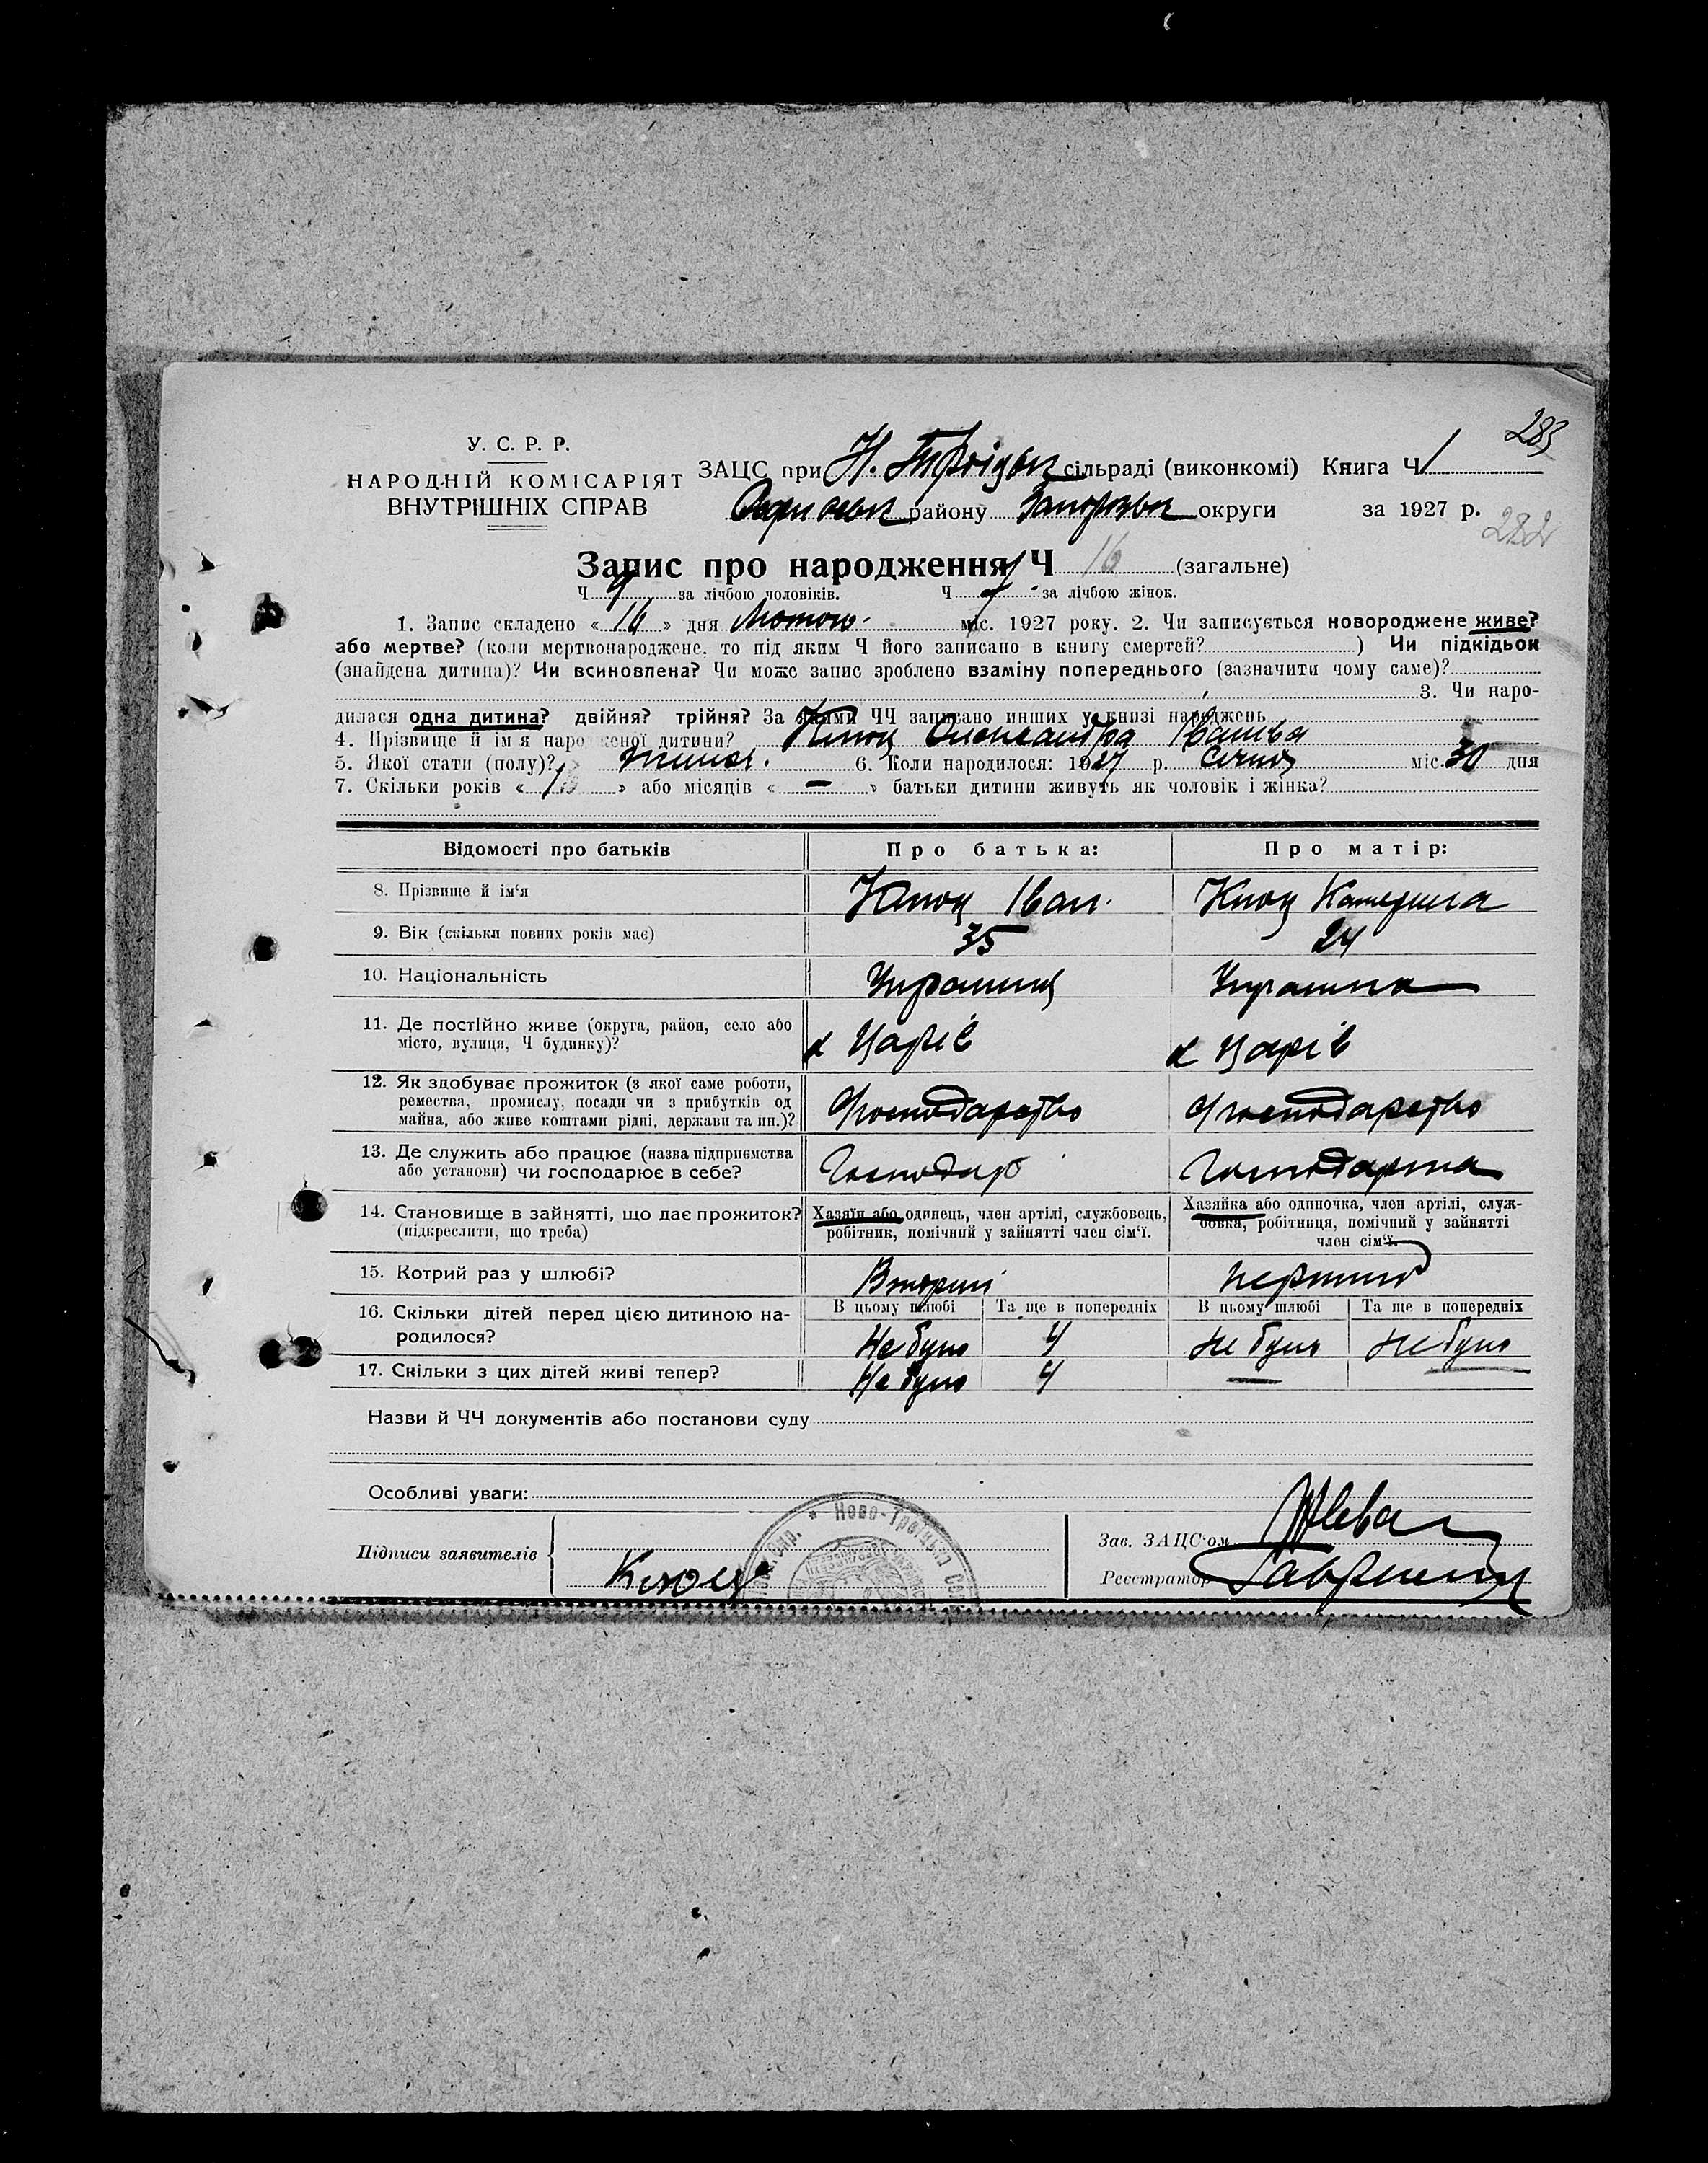 283
У. С. Р. Р.
НАРОДНІЙ КОМІСАРІЯТ
ВНУТРІШНІХ СПРАВ
ЗАЦС при Н. Троїцьк сільраді (виконкомі) Книга Ч 1
району Запорізьк округи за 1927 р.
282
Запис про народження Ч 16 (загальне)
Ч 9 за лічбою чоловіків. Ч 7 за лічбою жінок.
1. Запис складено « 16 » дня Лютого міс. 1927 року. 2. Чи записується новороджене живе?
або мертве? (коли мертвонароджене, то під яким Ч його записано в книгу смертей? ) Чи підкідьок
(знайдена дитина)? Чи всиновлена? Чи може запис зроблено взаміну попереднього (зазначити чому саме)?
3. Чи наро-
дилася одна дитина? двійня? трійня? За якими ЧЧ записано инших у книзі народжень
4. Прізвище й ім'я народженої дитини? Клюц Олександра Іванівна
5. Якої стати (полу)? жіноч. 6. Коли народилося: 1927 р. Січня міс. 30 дня
7. Скільки років « » або місяців « — » батьки дитини живуть як чоловік і жінка?
Відомості про батьків Про батька: Про матір:
8. Прізвище й ім'я Клюц Іван. Клюц Катерина
9. Вік (скільки повних років має) 35 24
10. Національність Українец Українка
11. Де постійно живе (округа, район, село або
місто, вулиця, Ч будинку)?
12. Як здобуває прожиток (з якої саме роботи,
ремества, промислу, посади чи з прибутків од
майна, або живе коштами рідні, держави та ин.)?
13. Де служить або працює (назва підприємства
або установи) чи господарює в себе? Господар Господарка
14. Становище в зайнятті, що дає прожиток?
(підкреслити, що треба)
Хазяїн або одинець, член артілі, службовець,
робітник, помічний у зайнятті член сім'ї.
Хазяйка або одиночка, член артілі, служ-
бовка, робітниця, помічний у зайнятті
член сім'ї.
15. Котрий раз у шлюбі? Вторий первий
16. Скільки дітей перед цією дитиною на-
родилося?
В цьому шлюбі Та ще в попередніх В цьому шлюбі Та ще в попередніх
Не було 4 Не було Не було
17. Скільки з цих дітей живі тепер? Не було 4 — —
Назви й ЧЧ документів або постанови суду
Особливі уваги:
Підписи заявителів Клюц
Ново-Троїцька
Зав. ЗАЦС'ом
Реєстратор